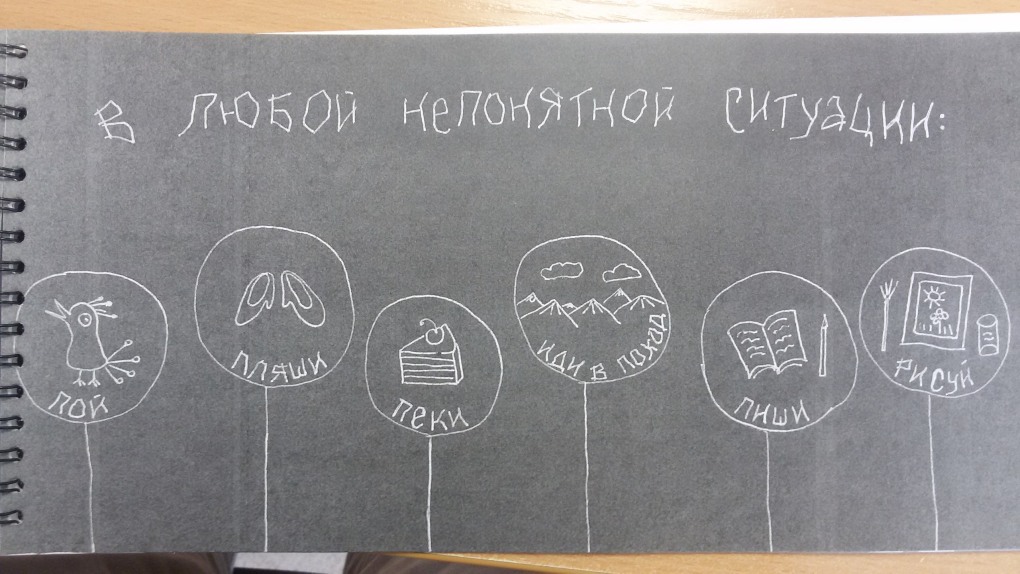 В ЛЮБОЙ НЕПОНЯТНОЙ СИТУАЦИИ:
ПОЙ
ПЛЯШИ
ПЕКИ
ИДИ В ПОХОД
ПИШИ
РИСУЙ